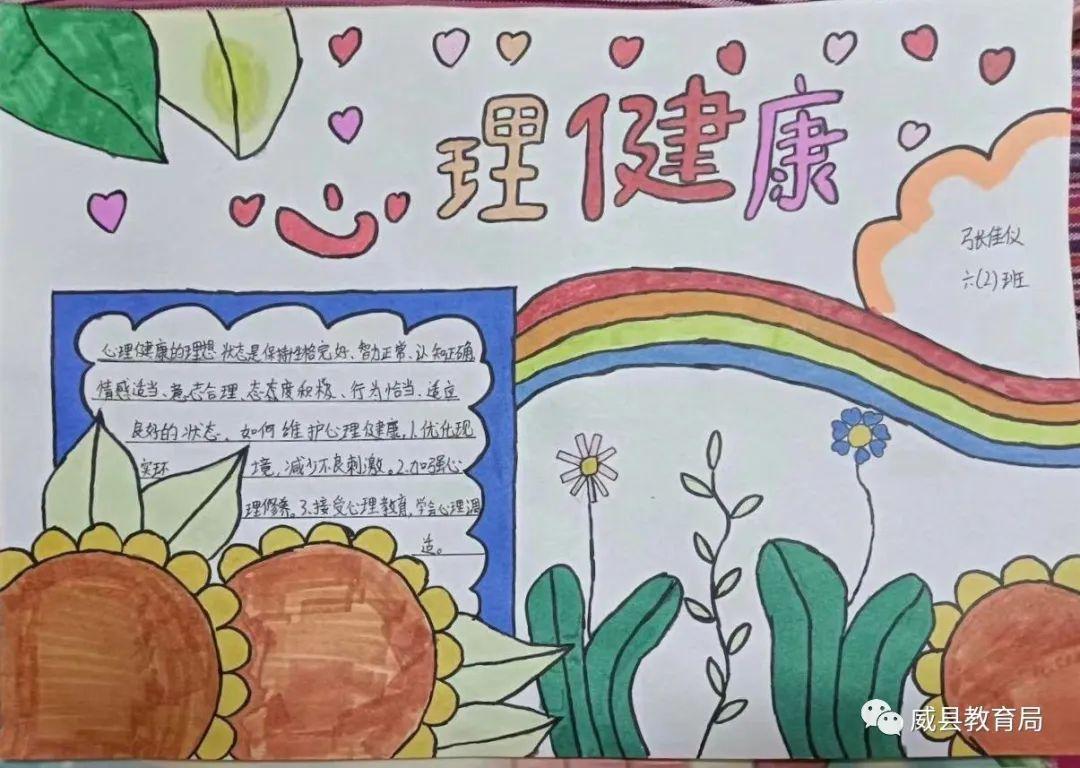 心理健康
张佳仪
六(2)班
心理健康的理想状态是保持性格完好、智力正常、认知正确、
情感适当、意志合理、态态度积极、行为恰当、适应
良好的状态。如何维护心理健康,1.优化现
实环境,减少不良刺激。2.加强心
理修养。3.接受心理教育,学会心理调
适。
威县教育局